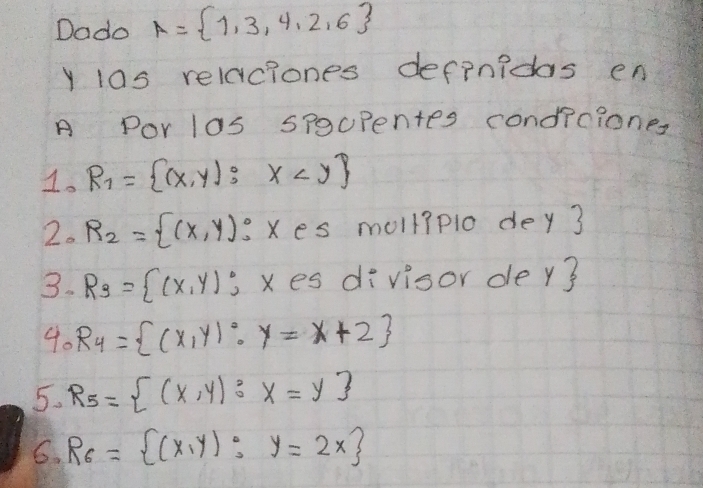 Dado A = {1,3,4,2,6}
y las relaciones definidas en
A Por las siguientes condiciones
1. R1 = {(x,y): x < y}
2. R2 = {(x,y): x es multiplo de y }
3. R3 = {(x,y): x es divisor de y}
4. R4 = {(x,y): y = x+2}
5. R5 = { (x,y): x = y }
6. R6 = {(x,y): y = 2x}